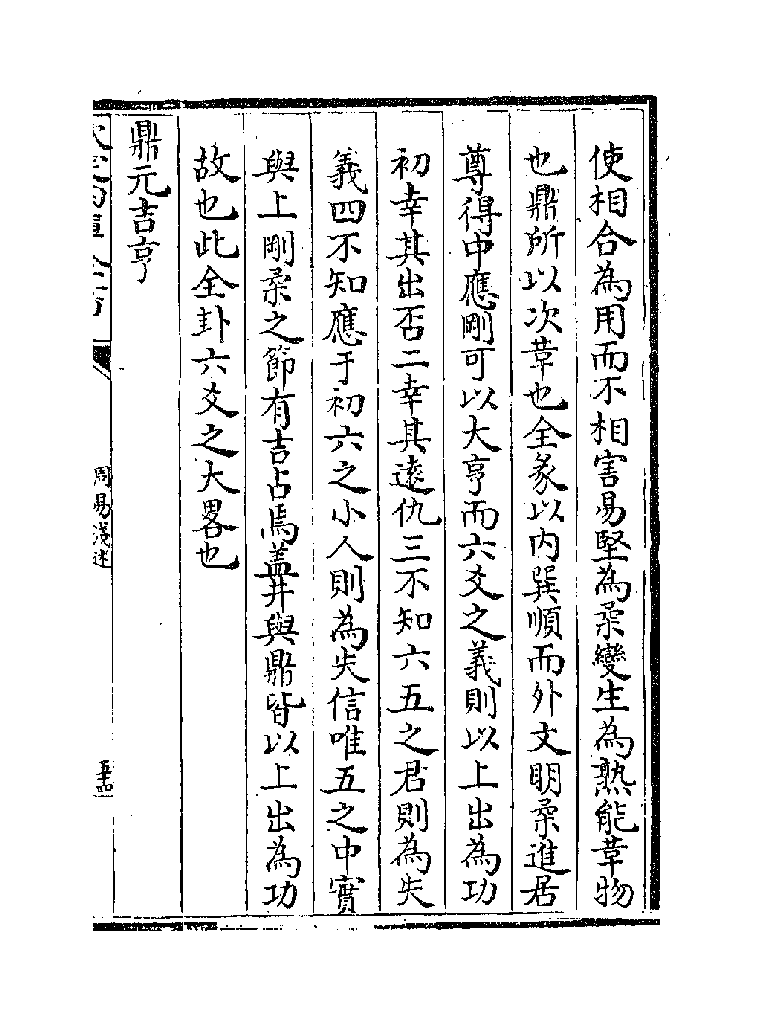 使相合為用而不相害易堅為柔變生為熟能革物
也鼎所以次革也全彖以内巽順而外文明柔進居
尊得中應剛可以大亨而六爻之義則以上出為功
初幸其出否二幸其遠仇三不知六五之君則為失
義四不知應于初六之小人則為失信唯五之中實
與上剛柔之節有吉占焉盖井與鼎皆以上出為功
故也此全卦六爻之大畧也
鼎元吉亨
周易淺述